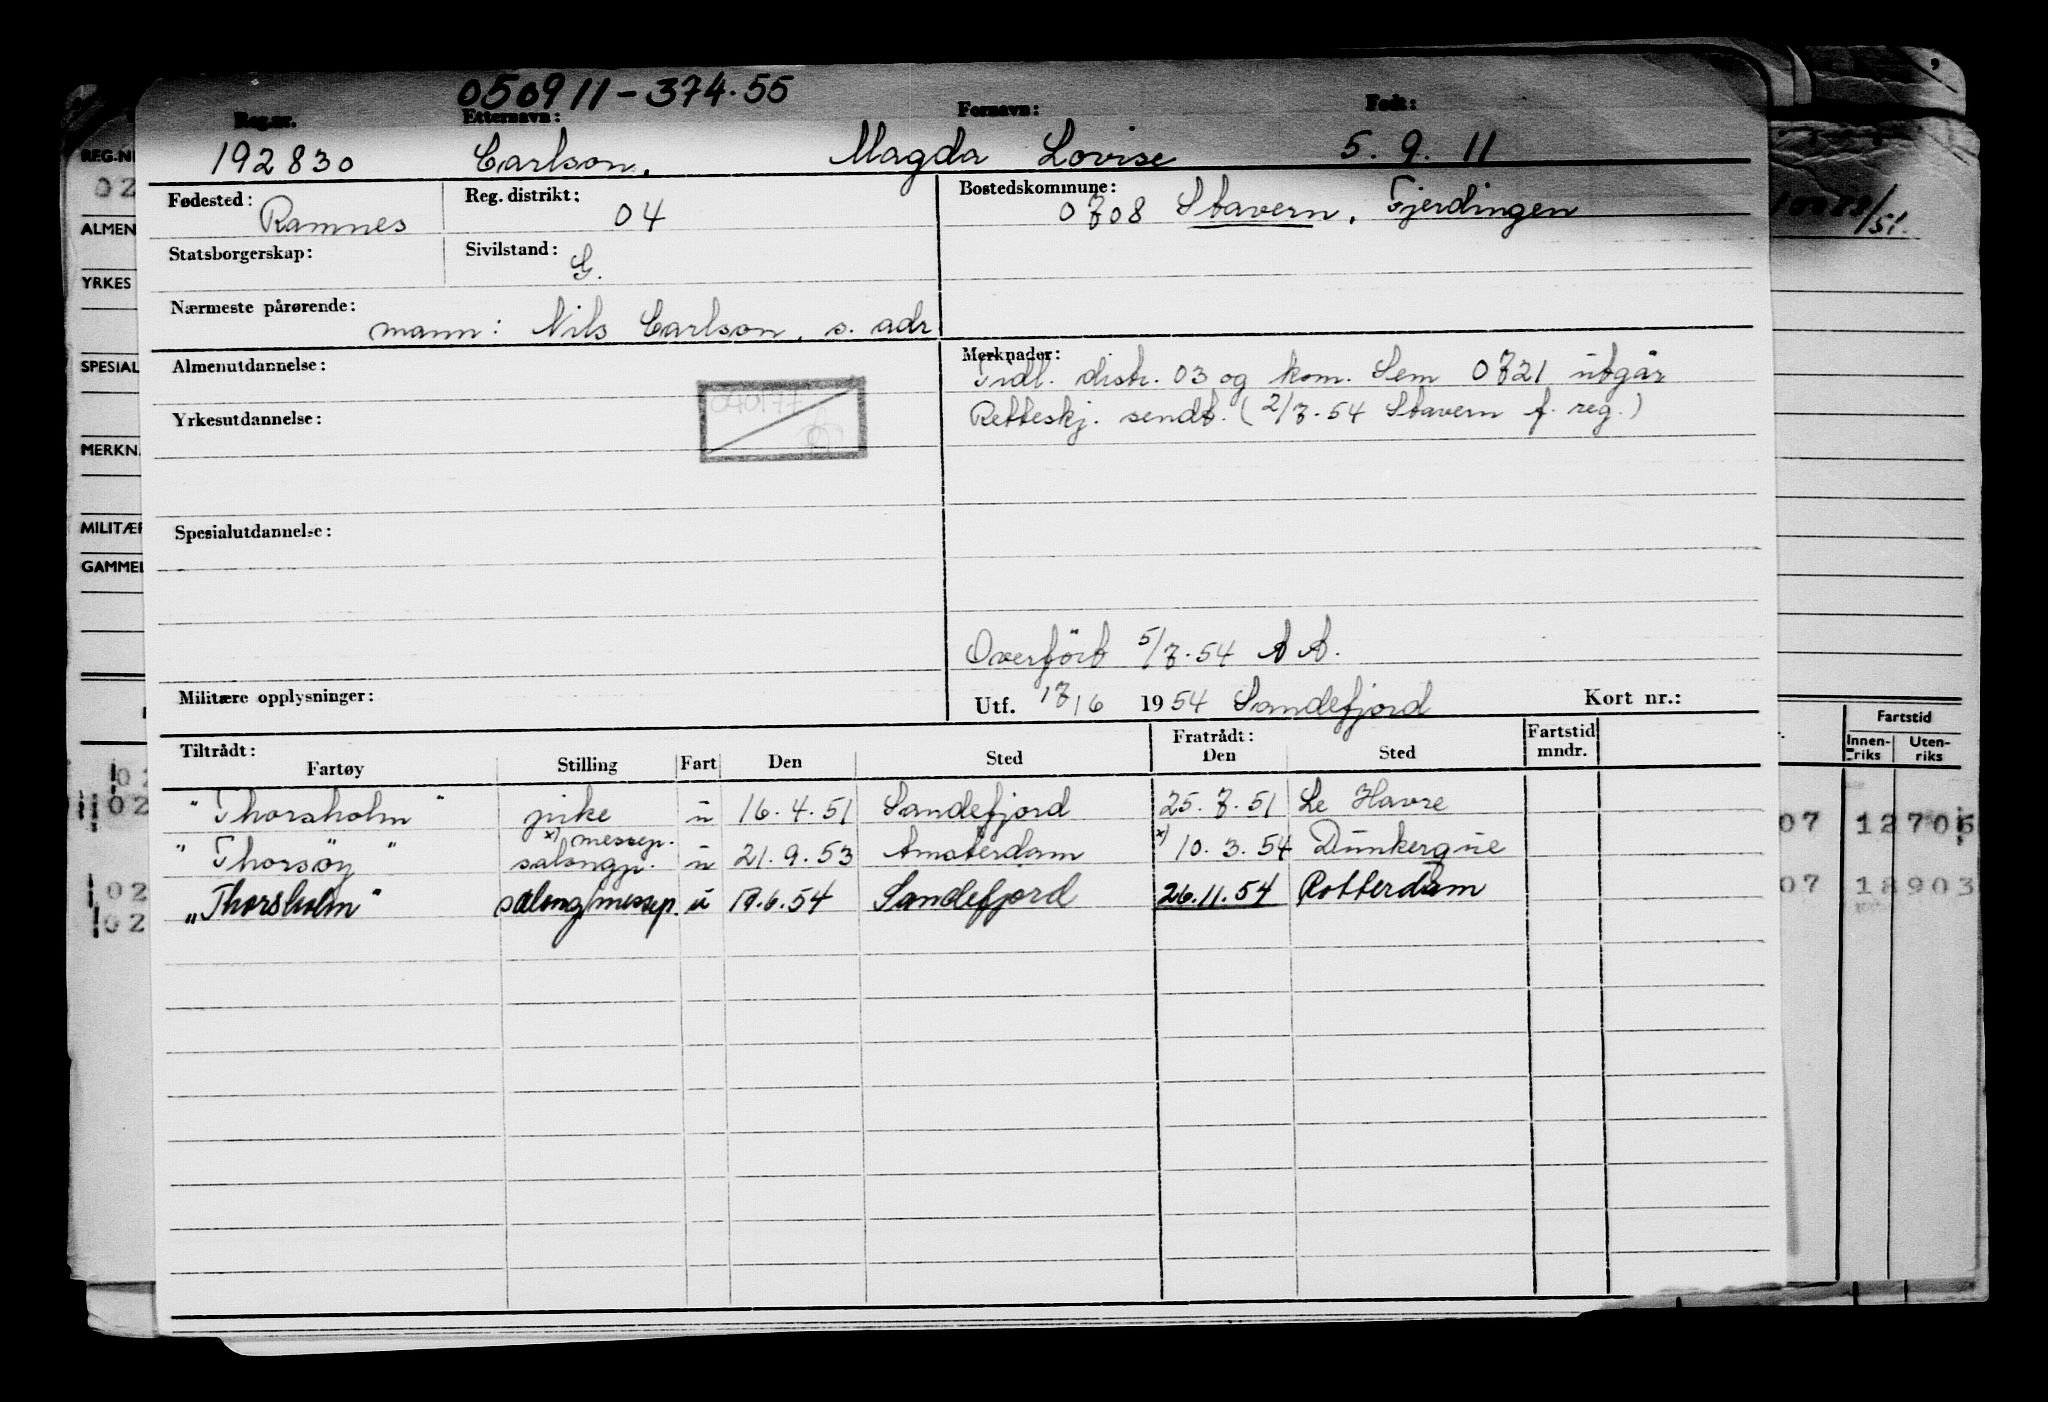 050911-374.55
Reg.nr. Etternavn: Fornavn: Født:
192830 Carlson, Magda Lovise 5. 9. 11
Fødested: Ramnes Reg. distrikt: 04 Bostedskommune: 0708 Stavern, Fjerdingen
Statsborgerskap: Sivilstand: G.
Nærmeste pårørende: mann: Nils Carlson, s. adr
Almenutdannelse: Merknader: Tidl. distr. 03 og kom. Sem 0721 utgår
Yrkesutdannelse: Retteskj. sendt. (2/7.54 Stavern f. reg.)
Spesialutdannelse:
Overført 5/7.54 AA.
Militære opplysninger: Utf. 17/6 1954 Sandefjord Kort nr.:
Tiltrådt: Fratrådt: Fartstid
Fartøy Stilling Fart Den Sted Den Sted mndr.
"Thorsholm" pike u 16.4.51 Sandefjord 25.7.51 Le Havre
x) messep.
"Thorsøy" salongp. u 21.9.53 Amsterdam x) 10.3.54 Dunkerque
"Thorsholm" salong/messep. u 17.6.54 Sandefjord 26.11.54 Rotterdam
REG.NR
02
ALMEN
YRKES
SPESIAL
MERKN.
MILITÆR
GAMMEL
02
02
02
02
/51.
Fartstid
Innen-riks Uten-riks
07 12705
07 18903